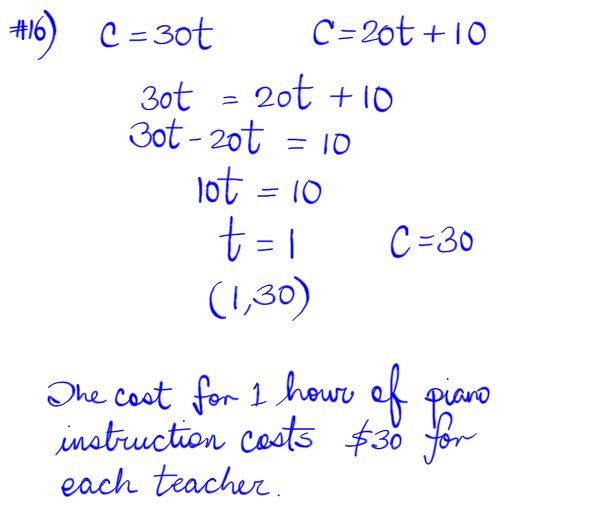 #16) C = 30t C = 20t + 10
30t = 20t + 10
30t - 20t = 10
10t = 10
t = 1 C = 30
(1,30)
The cost for 1 hour of piano
instruction costs $30 for
each teacher.